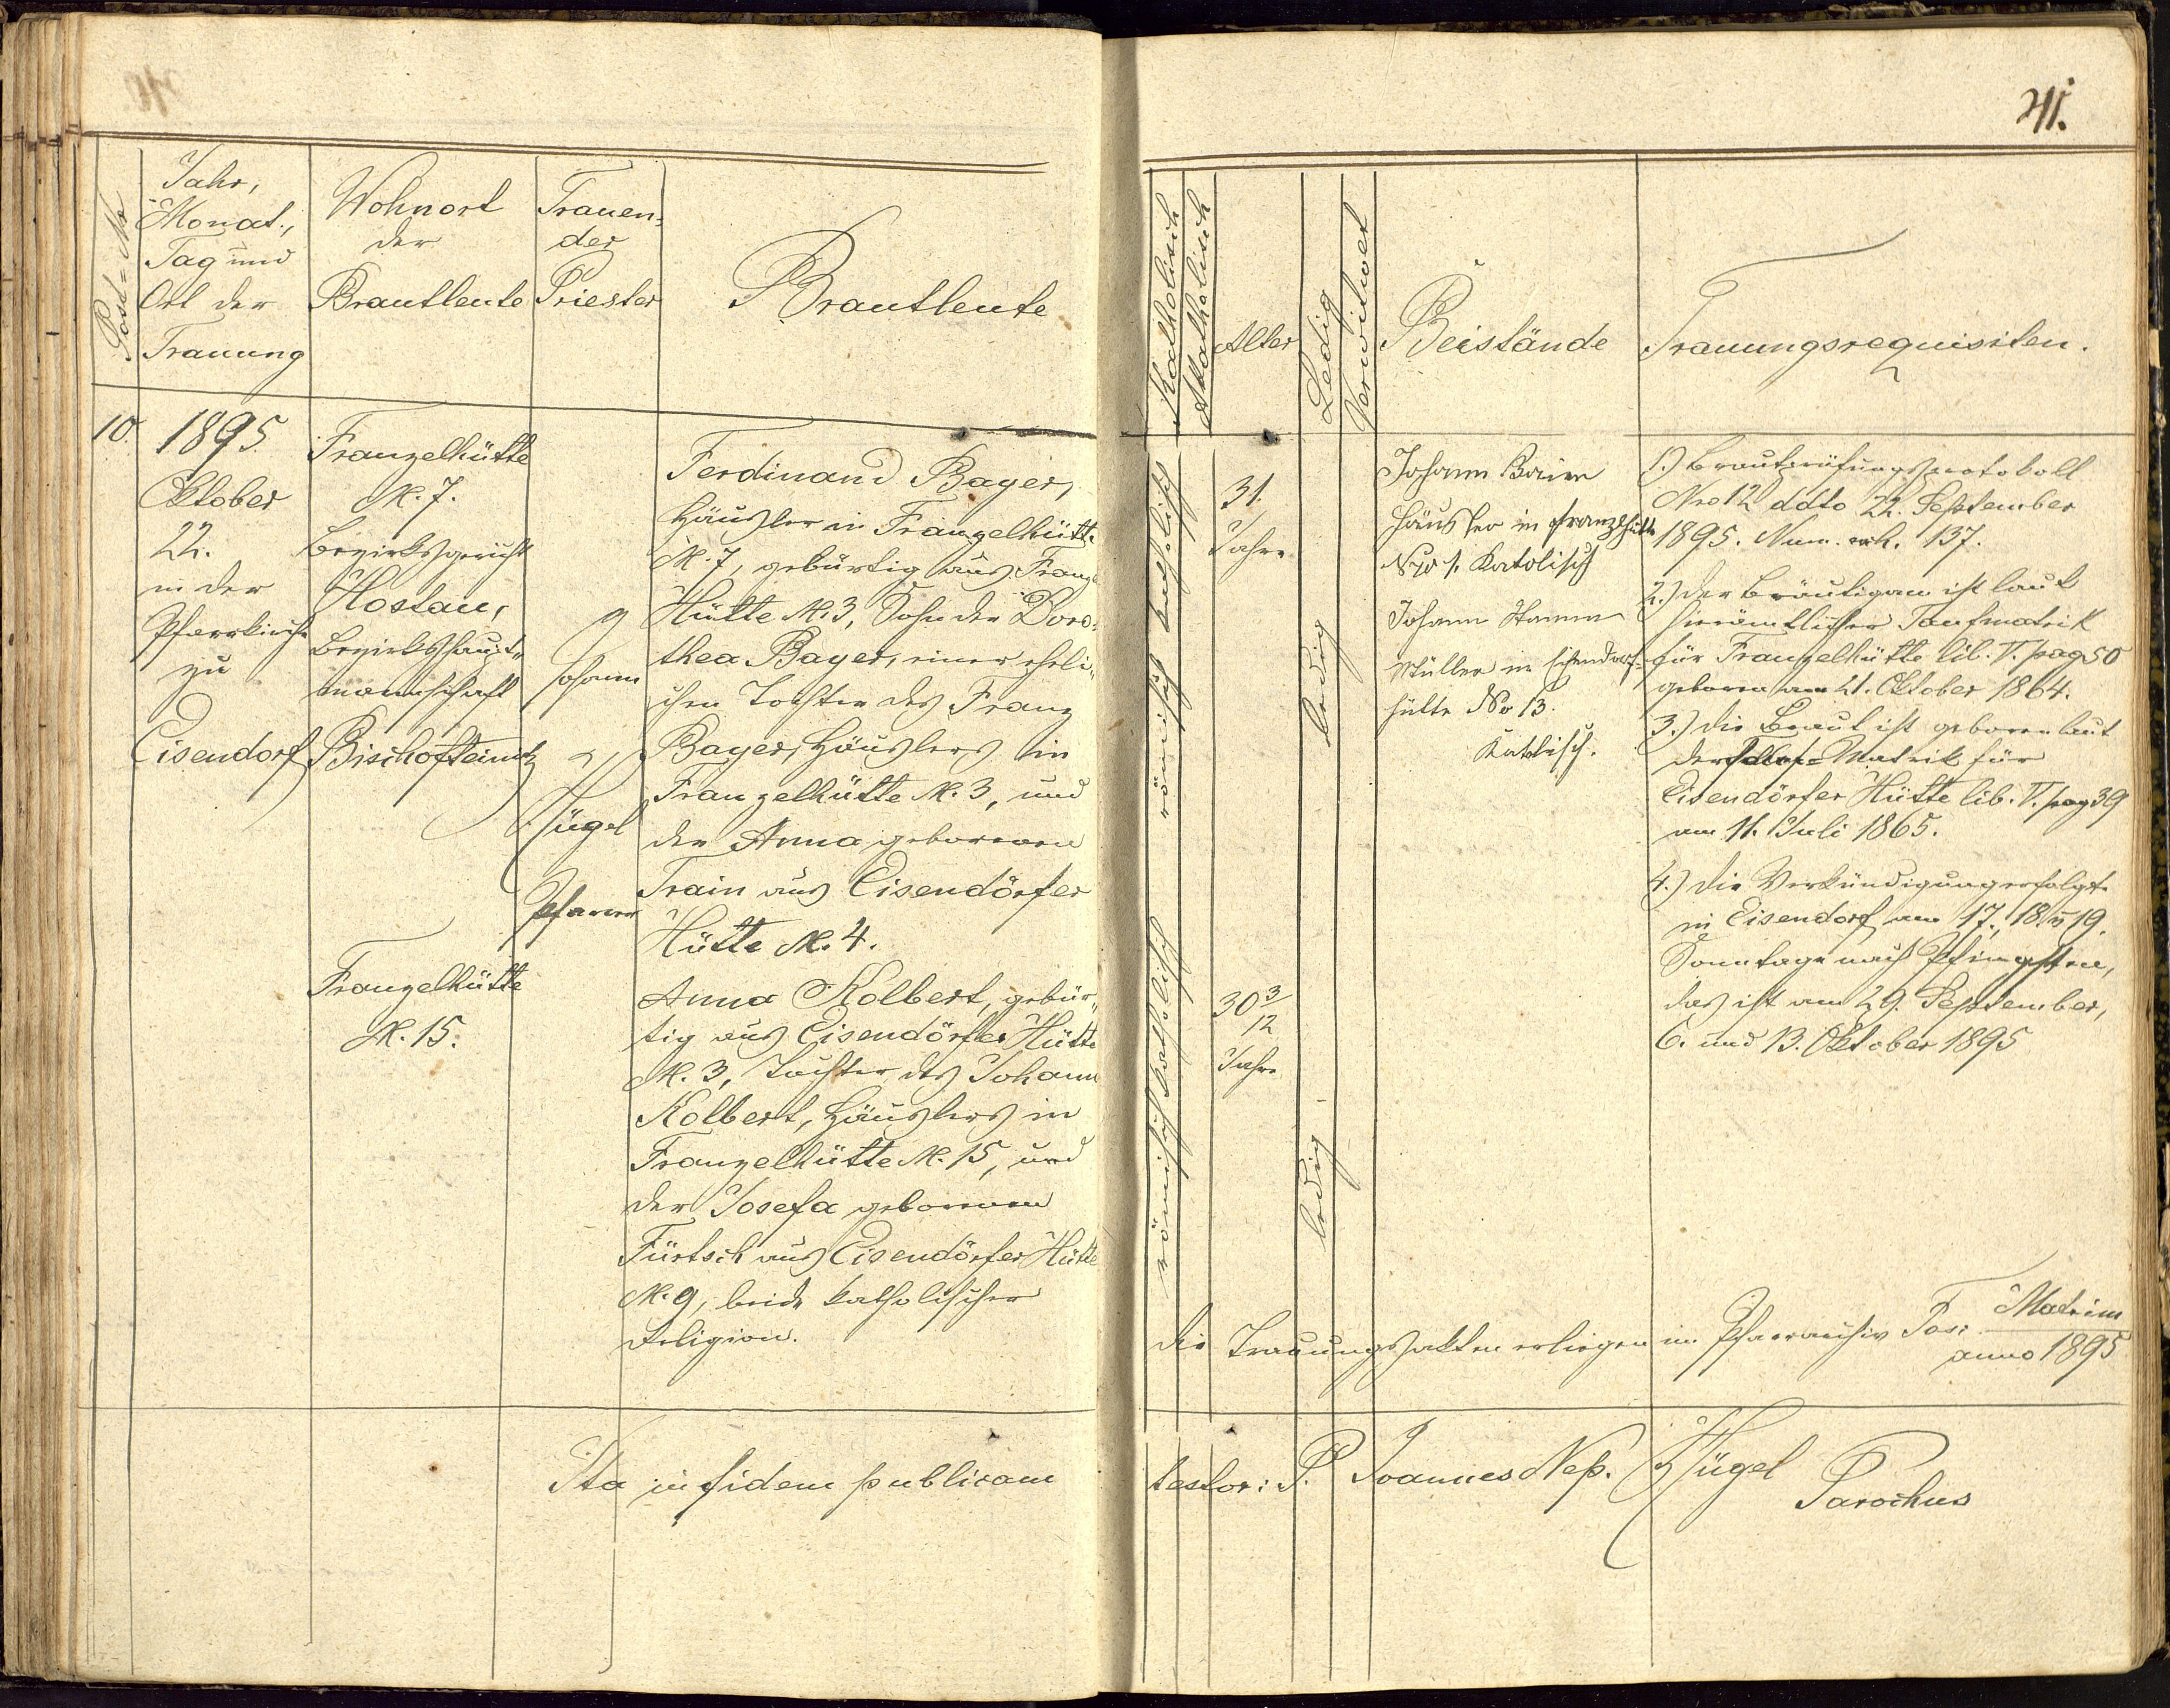 41.
Post=Nr
Jahr,
Monat.,
Tag und
Ort der
Trauung
Wohnort
der
Brautleute
Trauen-
der
Priester
Brautleute
Katholisch
Akatholisch
Alter
Ledig
Verwitwet
Beistände
Trauungsrequisiten.
10.
1895
Oktober
22.
in der
Pfarrkirche
zu
Eisendorf
Franzelhütte
N. 7.
Bezirksgericht
Hostau,
Bezirkshaupt-
mannschaft
Bischofteinitz
Franzelhütte
N. 15.
Johann
Hügel
Pfarrer
Ferdinand Bayer,
Häusler in Franzelhütte
N. 7, gebürtig aus Franzel
Hütte N. 3, Sohn der Doro-
thea Bayer, einer eheli-
chen Tochter des Franz
Bayer, Häuslers in
Franzelhütte N. 3, und
der Anna geborenen
Train aus Eisendörfer
Hütte N. 4.
Anna Kolbert, gebür-
tig aus Eisendörfer Hütte
N. 3, Tochter des Johann
Kolbert, Häuslers in
Franzelhütte N. 15, und
der Josefa geborenen
Fürtsch aus Eisendörfer Hütte
N. 9, beide katholischer
Religion.
römisch katholisch
römisch katholisch
31.
Jahre
30 3/12
Jahre
ledig
ledig
Johann
Häusler in Franzlhütte
Nro 1. Katolisch
Johann Stamm
Müller in Eisendorf-
hütte No 13.
Katolisch.
1.) Brautprüfungsprotokoll
Nro 12 ddto 22. September
1895. Num. exh. 137.
2.) Der Bräutigam ist laut
hierämtlicher Taufmatrik
für Franzelhütte lib. V. pag 50
geboren am 21. Oktober 1864.
3.) Die Braut ist geboren laut
derselben Matrik für
Eisendörfer Hütte lib. V. pag 39
am 11. Juli 1865.
4.) Die Verkündigung erfolgte
in Eisendorf am 17., 18. u 19.
Sonntage nach Pfingsten,
das ist am 29. September,
6. und 13. Oktober 1895
Die Trauungsakten erliegen im Pfarrarchiv Fasc. Matrim
anno 1895
Ita in fidem publicam testor: P. Joannes Nep. Hügel
Parochus